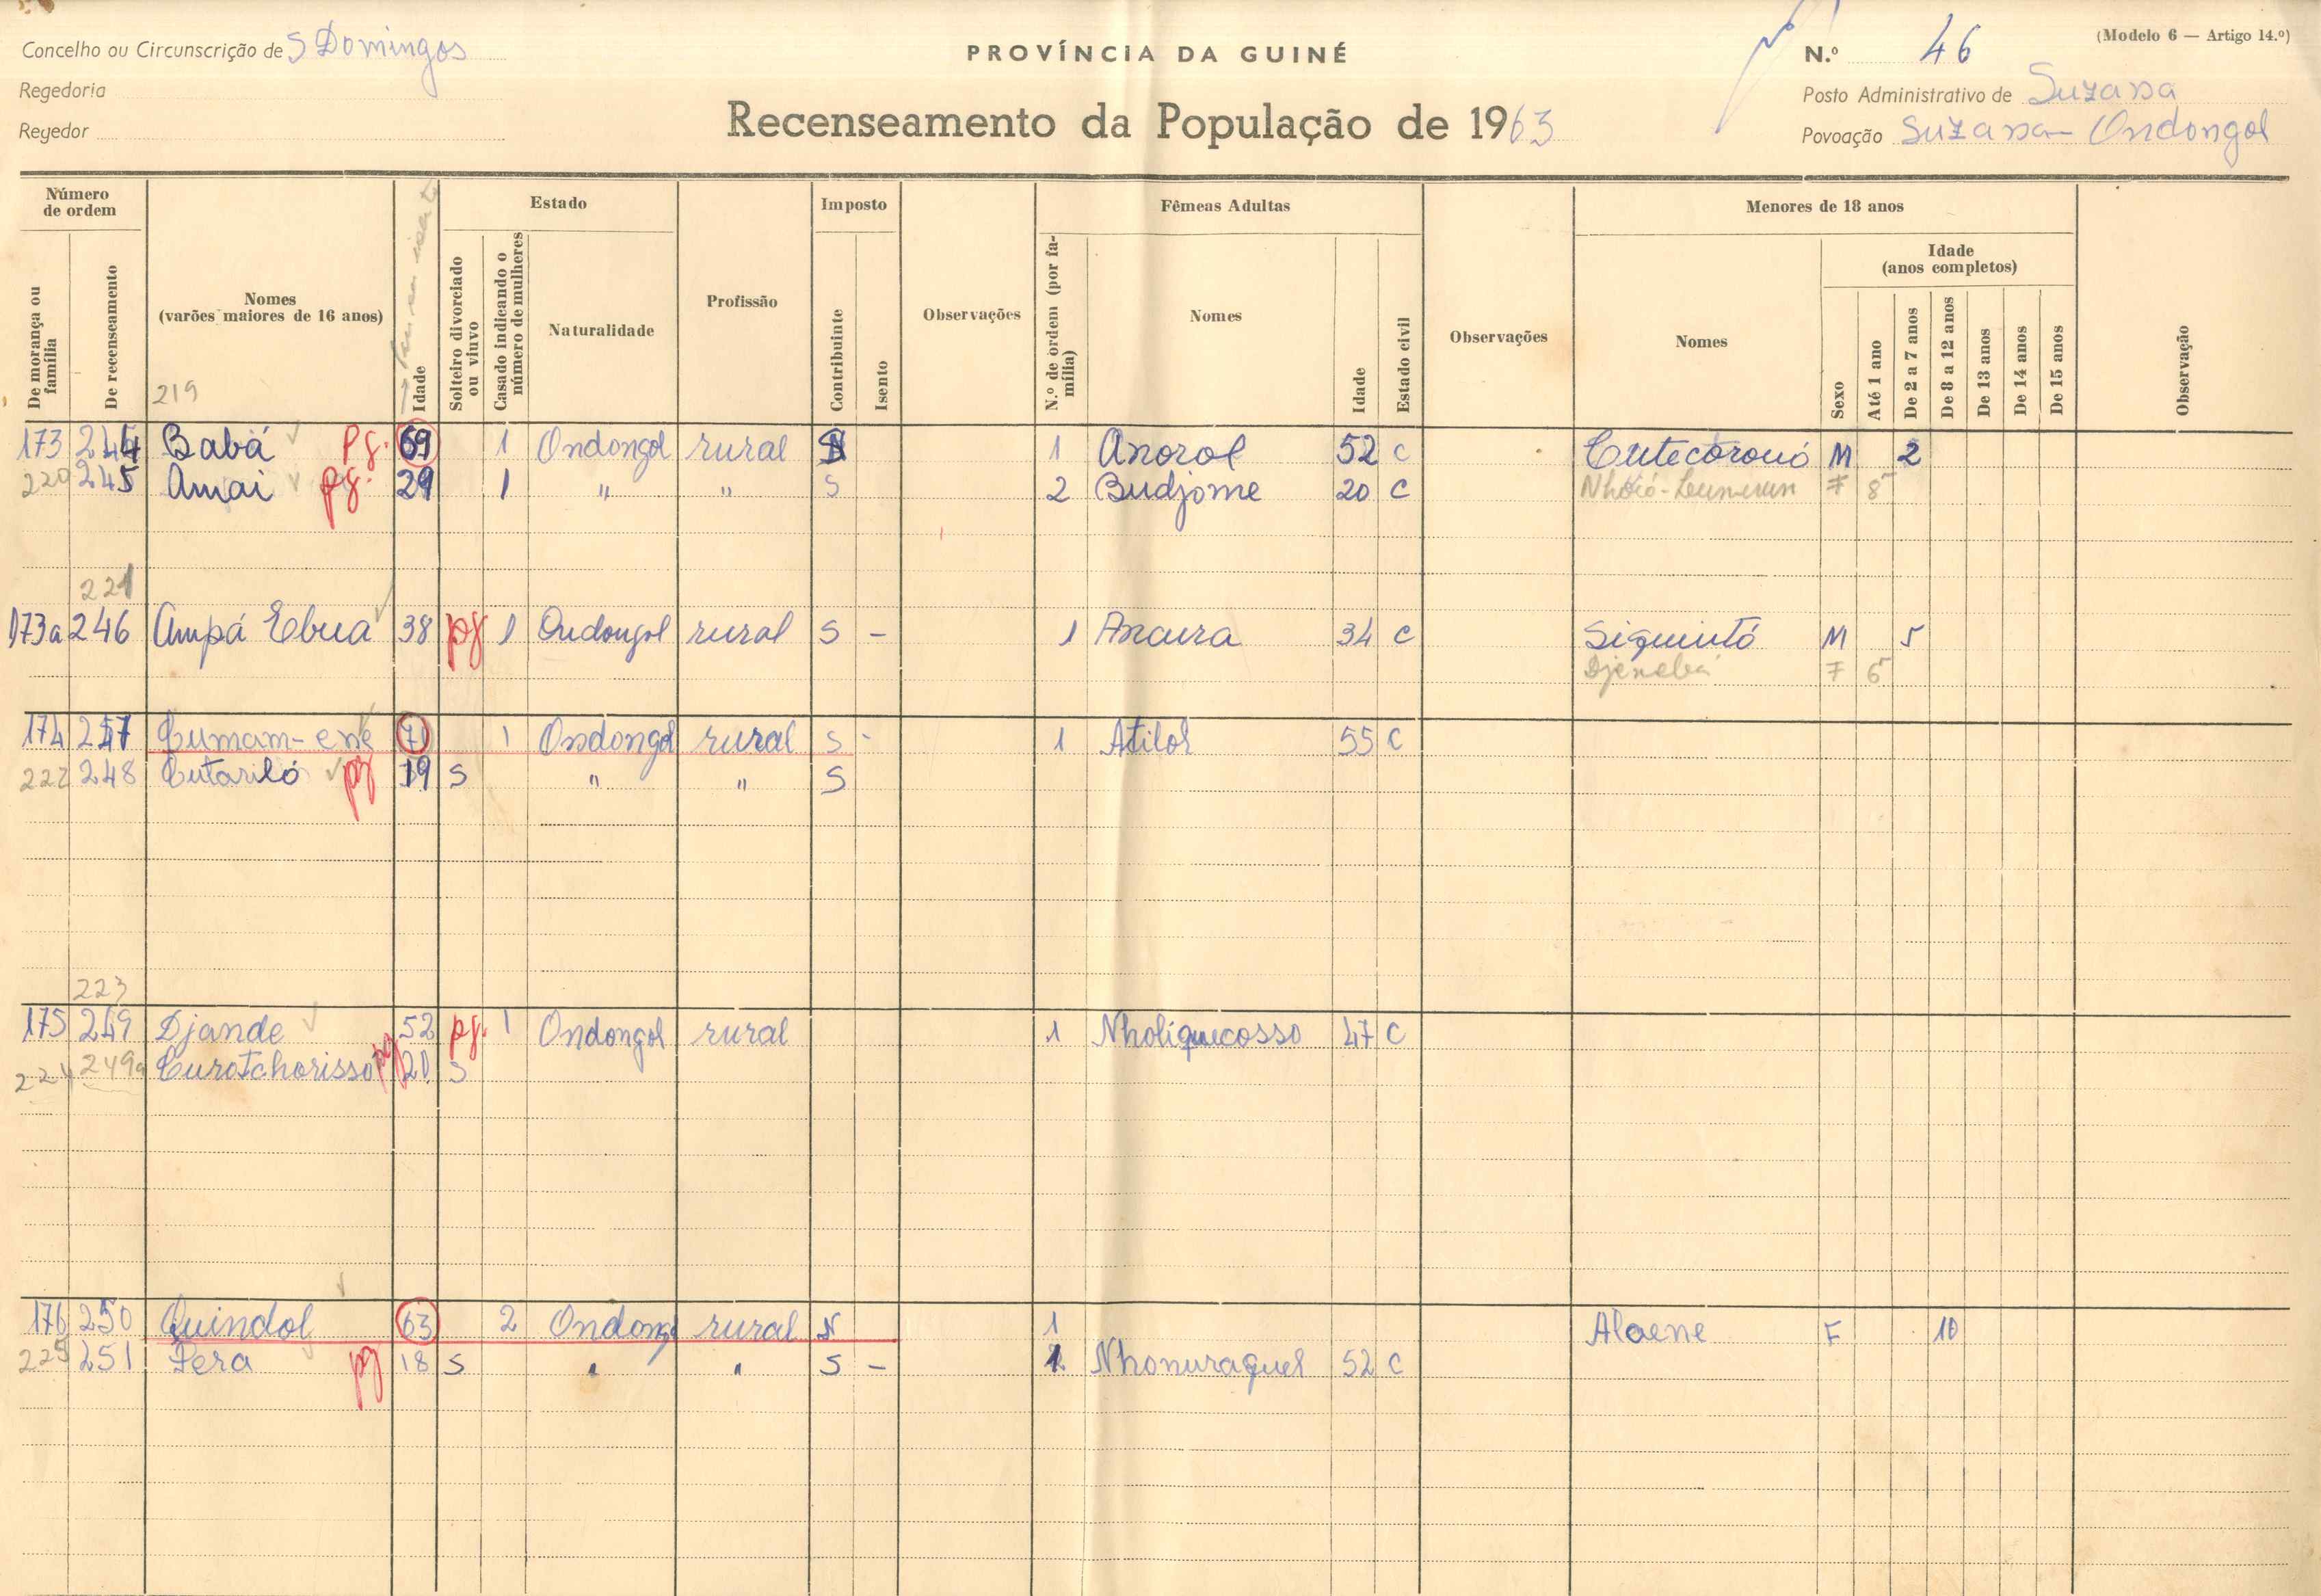 Concelho ou Circunscrição de S Domingos
PROVÍNCIA DA GUINÉ
N.º 46
(Modelo 6 — Artigo 14.º)
Regedoria
Posto Administrativo de Suzana
Regedor
Recenseamento da População de 1963
Povoação Suzana - Ondongol
Número de ordem
Estado
Imposto
Fêmeas Adultas
Menores de 18 anos
De morança ou família
De recenseamento
Nomes (varões maiores de 16 anos)
219
Idade
Solteiro divorciado ou viuvo
Casado indicando o número de mulheres
Naturalidade
Profissão
Contribuinte
Isento
Observações
N.º de ordem (por família)
Nomes
Idade
Estado civil
Observações
Nomes
Sexo
Idade (anos completos)
Até 1 ano
De 2 a 7 anos
De 8 a 12 anos
De 13 anos
De 14 anos
De 15 anos
Observação
173 244 Babá Pg. 69 1 Ondongol rural 1 Anorol 52 C M 2
220 245 Amai pg. 29 1 " " S 2 Budjome 20 C F 8
221
173a 246 Ampá Ebua 38 pg 1 Ondongol rural S - 1 Anaura 34 C Siquintó M 5
Djenebá F 6
174 247 Cumam-ené 71 1 Ondongol rural S - 1 Atilol 55 C
222 248 Cutariló pg 19 S " " S
223
175 249 Djande 52 pg. 1 Ondongol rural 1 Nholiquecosso 47 C
224 249a Curotchorisso pg 20 S
176 250 Quindol 63 2 Ondongol rural N 1 Alaene F 10
225 251 Fera pg 18 S " " S - 1 Nhonuraquel 52 C